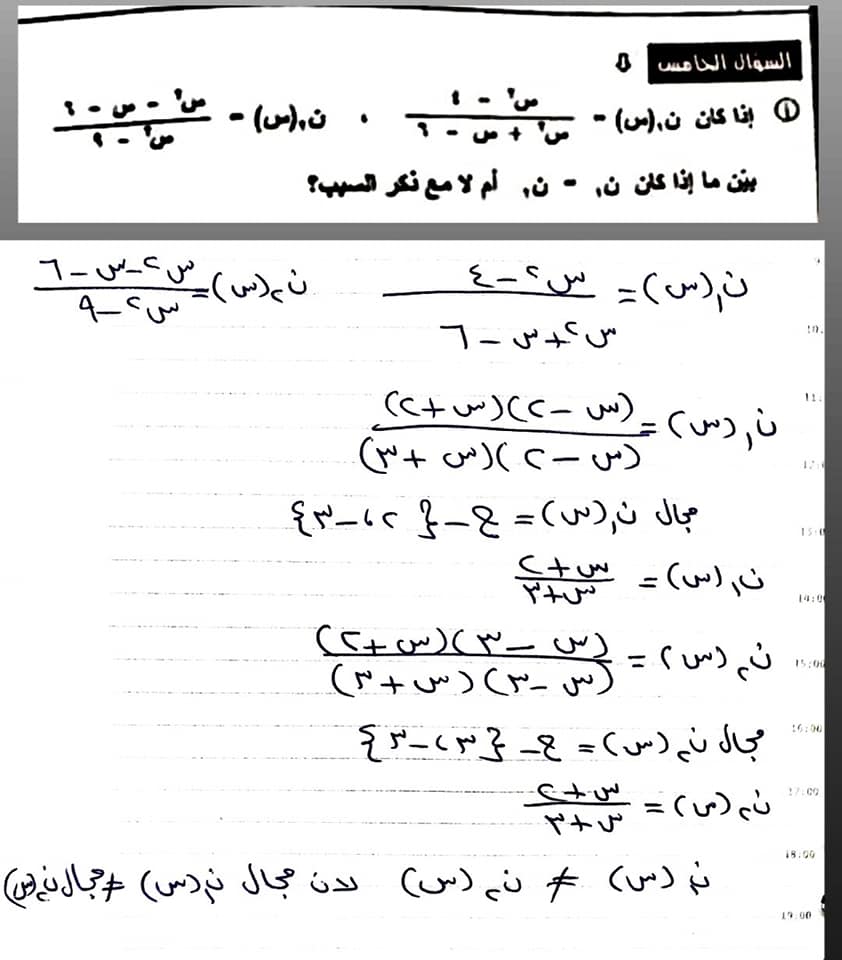 السؤال الخامس
أ إذا كان ن₁(س) = (س² - ٤)/(س² + س - ٦) ، ن₂(س) = (س² - س - ٦)/(س² - ٩)
بيّن ما إذا كان ن₁ = ن₂ أم لا مع ذكر السبب؟
ن₁(س) = (س² - ٤)/(س² + س - ٦) ن₂(س) = (س² - س - ٦)/(س² - ٩)
ن₁(س) = (س - ٢)(س + ٢)/(س - ٢)(س + ٣)
مجال ن₁(س) = ح - {٢، -٣}
ن₁(س) = (س + ٢)/(س + ٣)
ن₂(س) = (س - ٣)(س + ٢)/(س - ٣)(س + ٣)
مجال ن₂(س) = ح - {٣، -٣}
ن₂(س) = (س + ٢)/(س + ٣)
ن₁(س) ≠ ن₂(س) لان مجال ن₁(س) ≠ مجال ن₂(س)
10.
11.
14:00
15:00
16:00
17:00
18:00
19:00